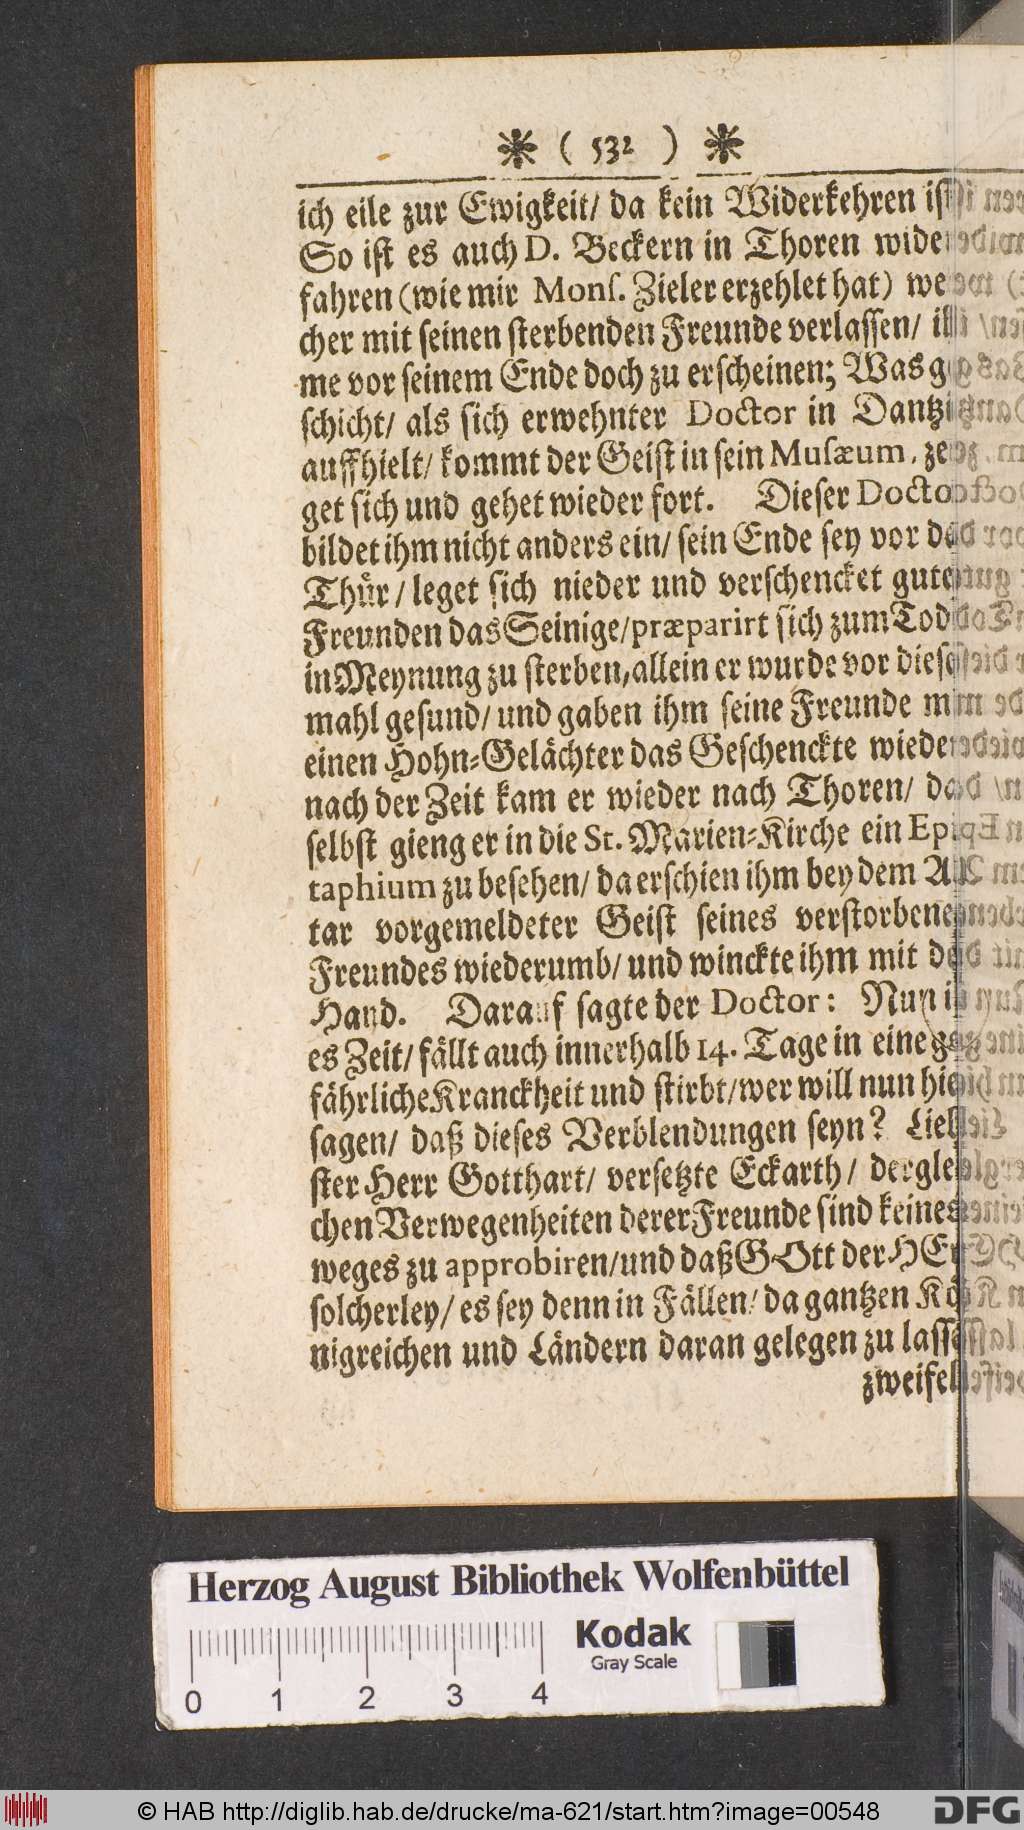 * ( 532 ) *
ich eile zur Ewigkeit/ da kein Widerkehren ist
So ist es auch D. Beckern in Thoren wider
fahren (wie mir Monſ. Zieler erzehlet hat) wel
cher mit seinen sterbenden Freunde verlassen/ ih
me vor seinem Ende doch zu erscheinen; Was ge
schicht/ als sich erwehnter Doctor in Dantzig
auffhielt/ kommt der Geist in sein Musæum, zei
get sich und gehet wieder fort. Dieser Doctor
bildet ihm nicht anders ein/ sein Ende sey vor der
Thür/ leget sich nieder und verschencket guten
Freunden das Seinige/ præparirt sich zum Tod
in Meynung zu sterben, allein er wurde vor dieses
mahl gesund/ und gaben ihm seine Freunde mit
einen Hohn-Gelächter das Geschenckte wieder
nach der Zeit kam er wieder nach Thoren/ da
selbst gieng er in die St. Marien-Kirche ein Epi
taphium zu besehen/ da erschien ihm bey dem Al
tar vorgemeldeter Geist seines verstorbenen
Freundes wiederumb/ und winckte ihm mit der
Hand. Darauf sagte der Doctor: Nun ist
es Zeit/ fällt auch innerhalb 14. Tage in eine ge
fährliche Kranckheit und stirbt/ wer will nun hie
sagen/ daß dieses Verblendungen seyn? Lieb
ster Herr Gotthart/ versetzte Eckarth/ derglei
chen Verwegenheiten derer Freunde sind keines
weges zu approbiren/ und daß GOtt der HErr
solcherley/ es sey denn in Fällen/ da gantzen Kö
nigreichen und Ländern daran gelegen zu lassen
zweifel
Herzog August Bibliothek Wolfenbüttel
Kodak
Gray Scale
0 1 2 3 4
© HAB http://diglib.hab.de/drucke/ma-621/start.htm?image=00548
DFG